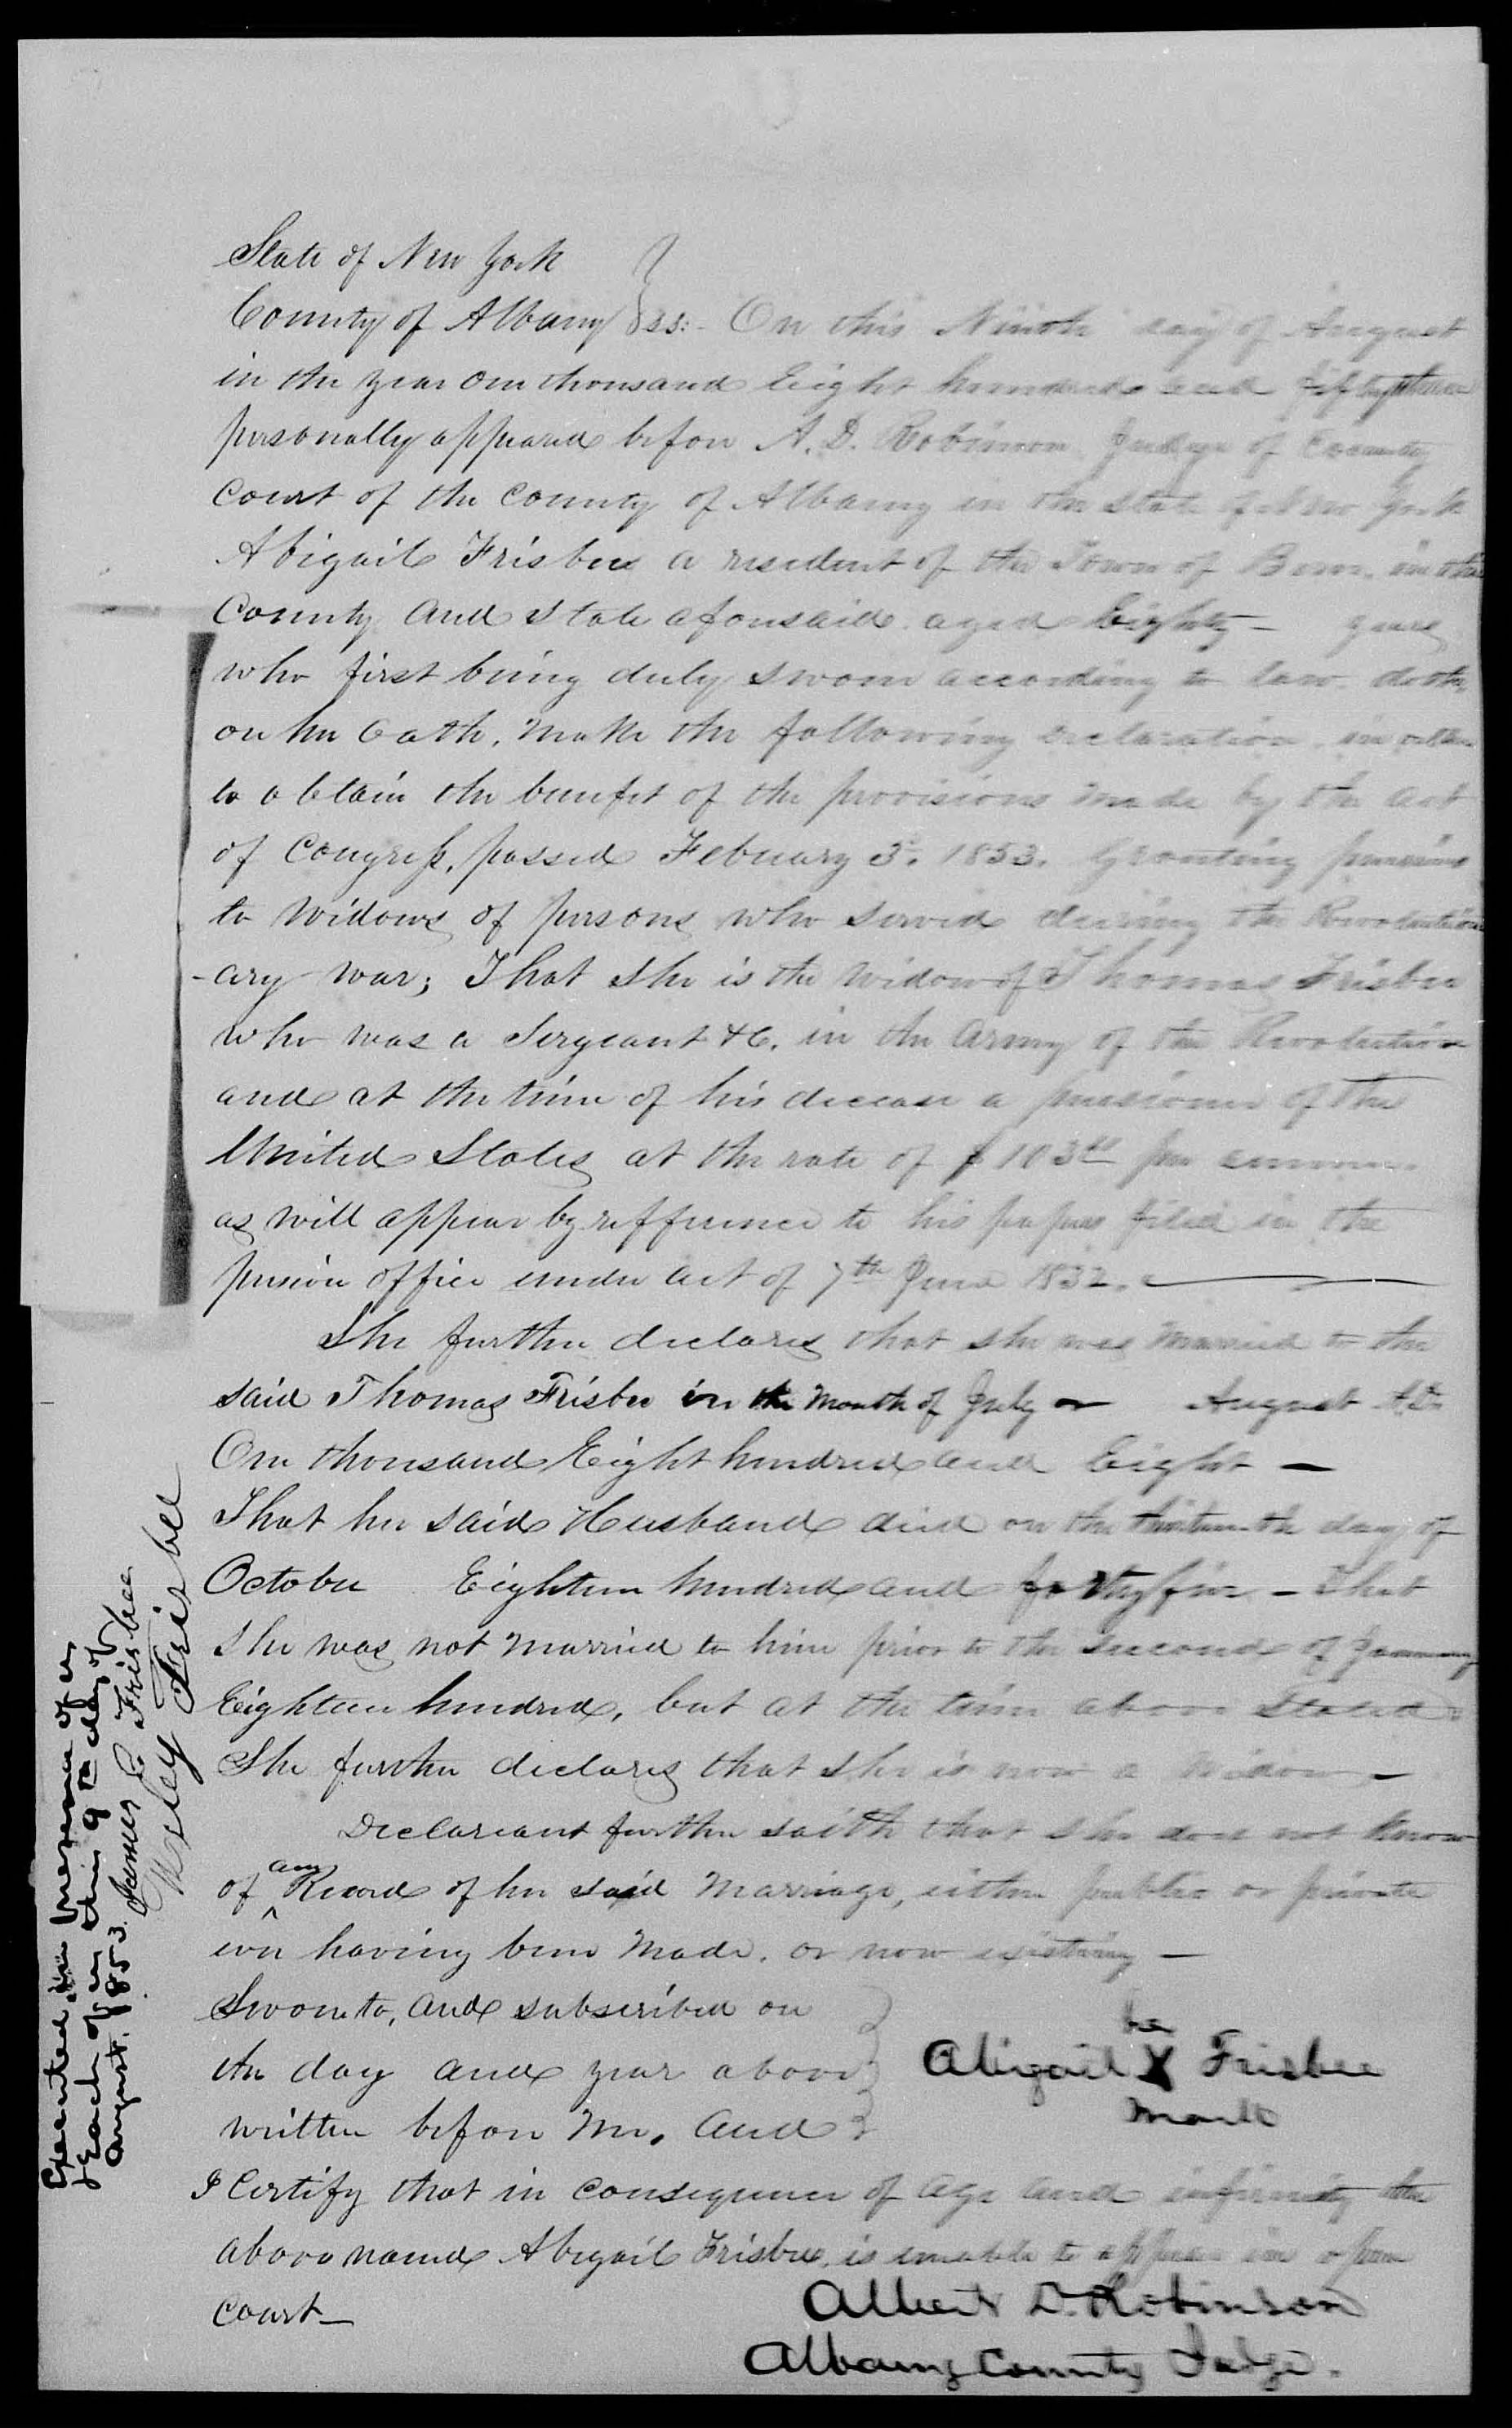 State of New York
County of Albany ss:- On this Ninth day of August
in the year one thousand Eight hundred and fifty three
personally appeared before A. D. Robinson Judge of County
Court of the County of Albany in the State of New York
Abigail Frisbee a resident of the Town of Bern, in the
County and State aforesaid aged Eighty - years
who first being duly sworn according to law doth,
on her Oath, make the following declaration, in order
to obtain the benefit of the provisions made by the act
of Congress, passed Febuary 3d. 1853. Granting pensions
to Widows of persons who served during the Revolution
-ary war; That She is the Widow of Thomas Frisbee
who was a Sergeant &C. in the Army of the Revolution
and at the time of his decease a pensioner of the
United States at the rate of $103 per annum.
as will appear by refference to his papers filed in the
pension office under act of 7th June 1832.
She further declares that she was married to the
said Thomas Frisbee in the Month of July or August A.D.
One thousand Eight hundred and Eight —
That her said Husband died on the thirteenth day of
October Eighteen hundred and forty five - That
she was not married to him prior to the second of January
Eighteen hundred, but at the time above Stated.
She further declares that she is now a Widow —
Declareant further saith that she does not know
of any Record of her said Marriage, either public or private
ever having been made, or now existing —
Sworn to, and subscribed on
the day and year above
written before Me. And
her
Abigail X Frisbee
mark
I Certify that in Consequence of age and infirmity the
above named Abigail Frisbee, is unable to appear in open
Court—
Albert D. Robinson
Albany County Judge.
Executed in presence of us
& each of us this 9th day of
August. 1853.
James E Frisbee
Wesley Frisbee